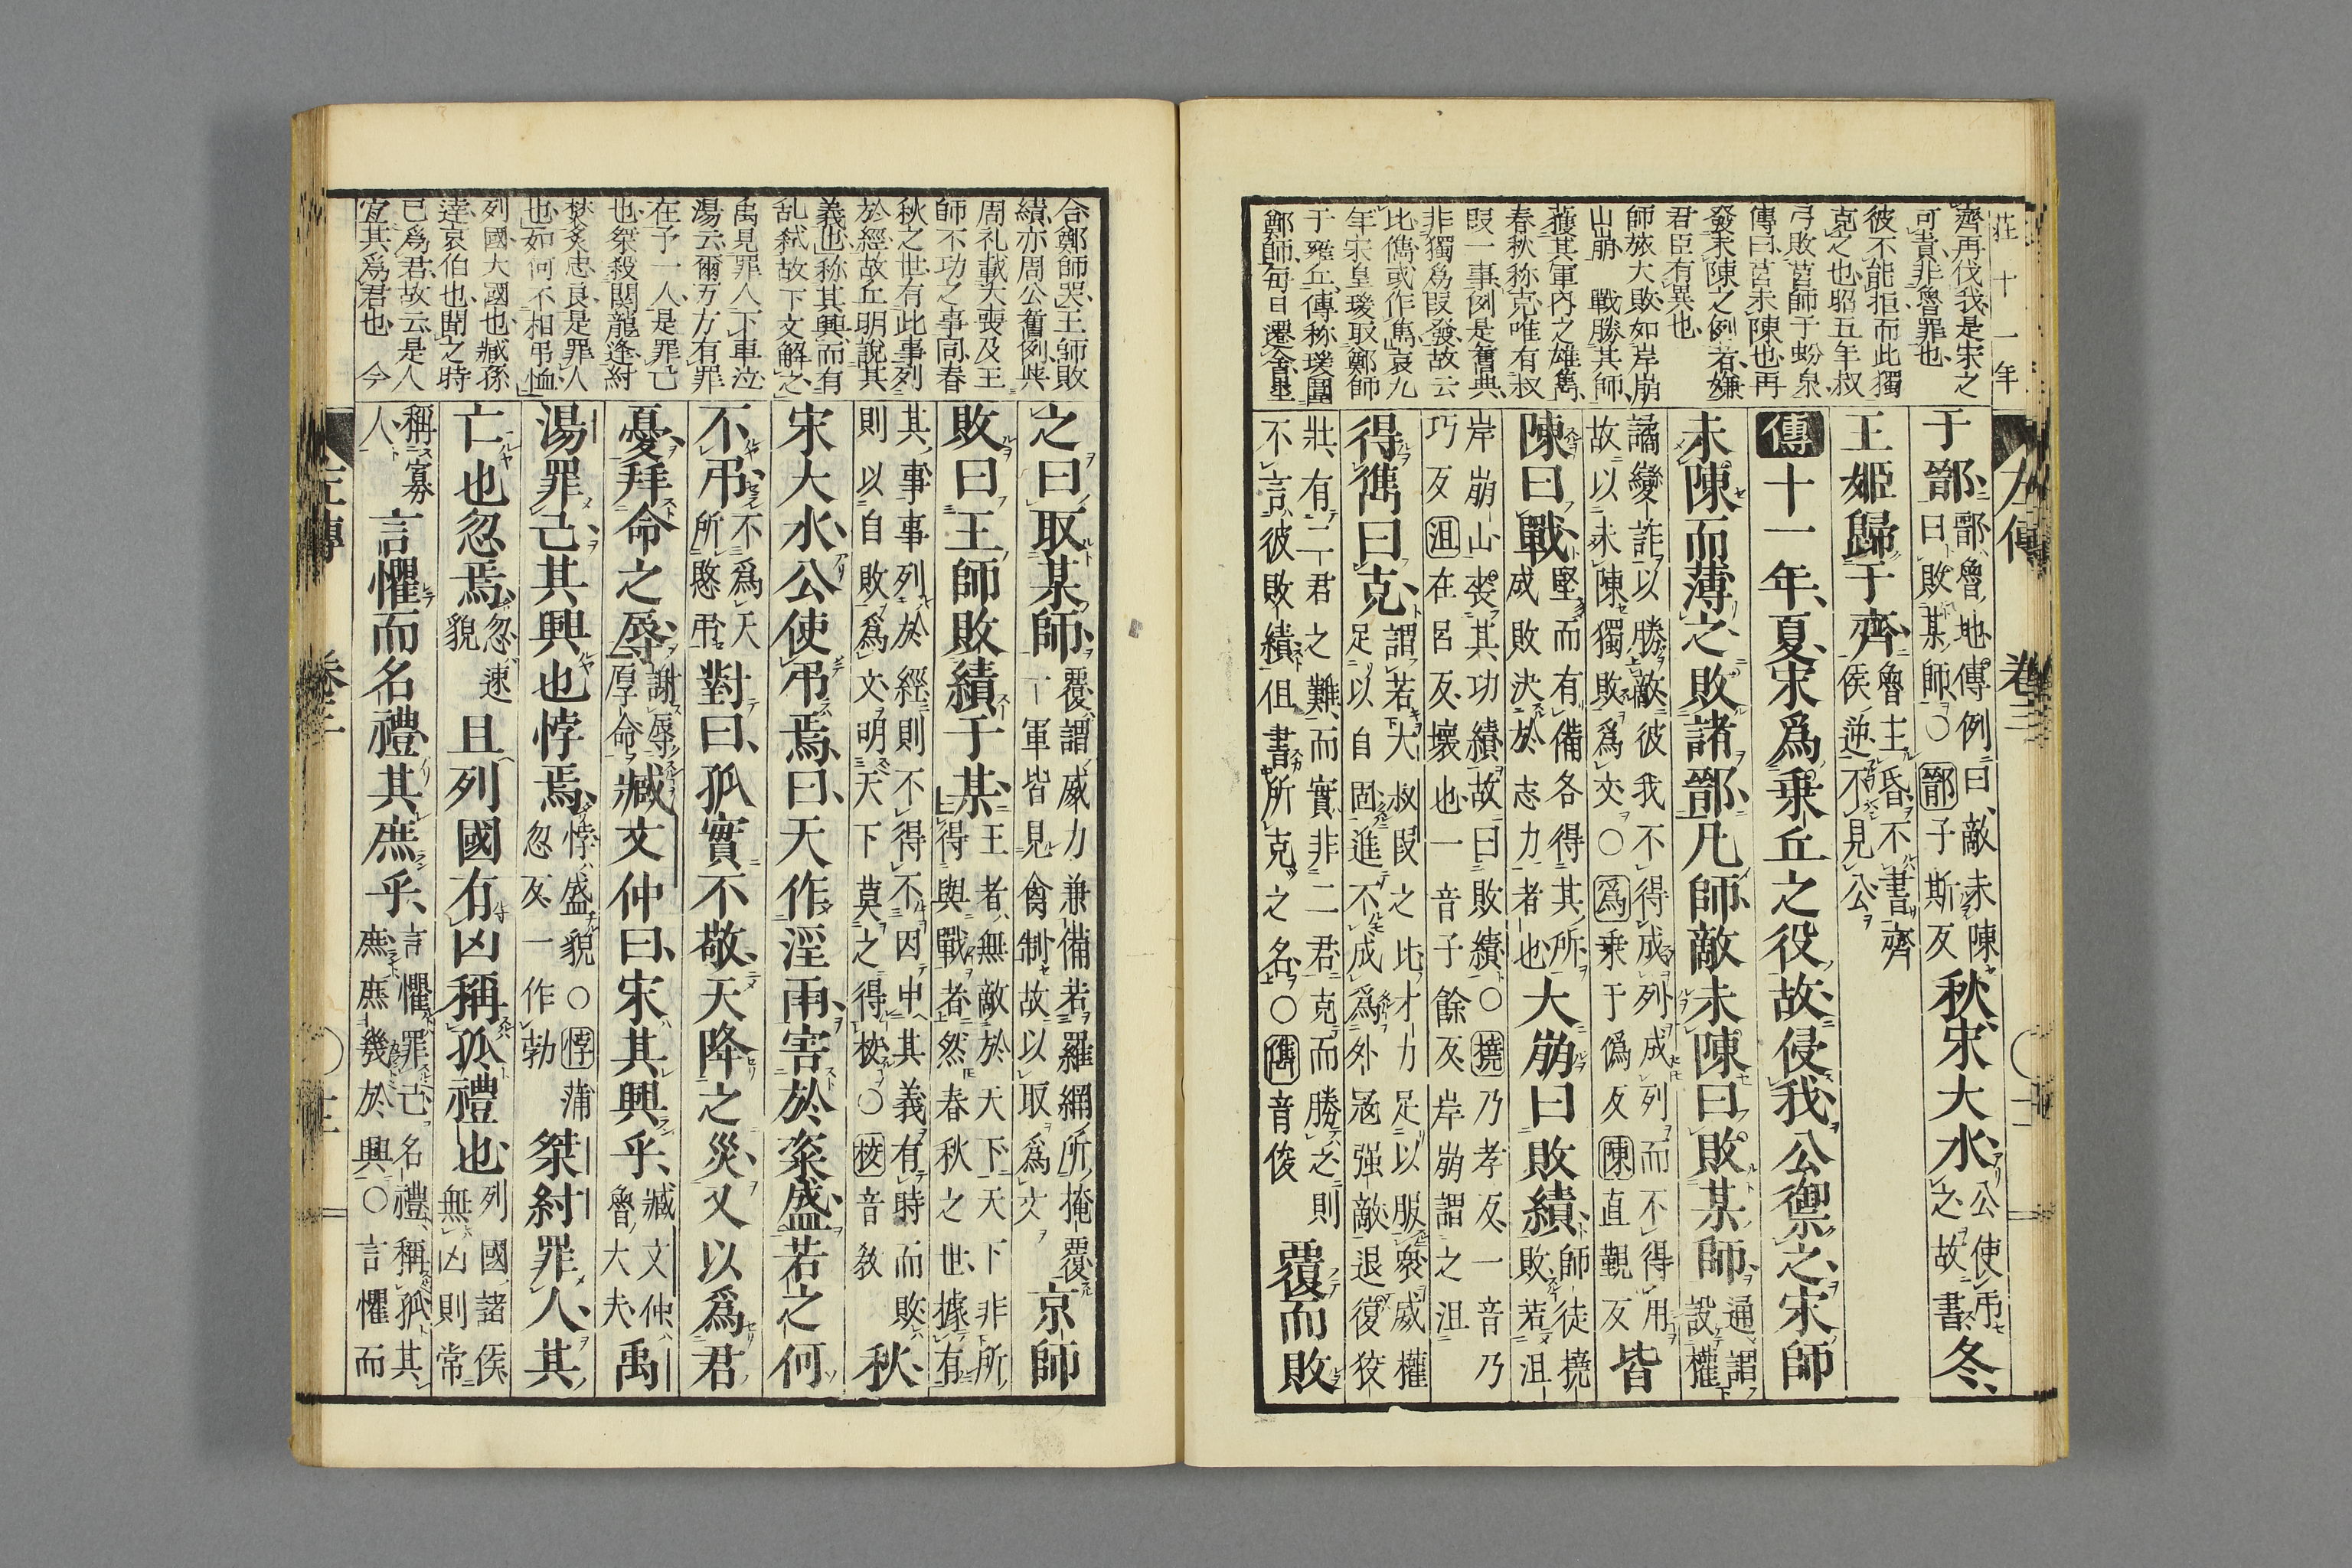 莊十一年
齊再伐我是宋之
可責非魯罪也
彼不能拒而此獨
克之也昭五年叔
弓敗莒師于蚡泉
傳曰莒未陳也再
發未陳之例者嫌
君臣有異也
師旅大敗如岸崩
山崩　戰勝其師
獲其軍内之雄雋
春秋称克唯有叔
段一事例是舊典
非獨爲段發故云
比儁或作雋哀九
年宋皇瑗取鄭師
于雍丘傳称瑗圍
鄭師毎日遷舍壘
左傳　卷三
于鄑鄑魯地傳例曰敵未陳曰敗某師○鄑子斯反秋宋大水公使弔之故書冬
王姬歸于齊魯主昏不書齊侯逆不見公
傳十一年夏宋爲乘丘之役故侵我公禦之宋師
未陳而薄之敗諸鄑凡師敵未陳曰敗某師通謂設權
譎變詐以勝敵彼我不得成列成列而不得用故以未陳獨敗爲文○爲乘于僞反陳直覲反皆
陳曰戰堅而有備各得其所成敗決於志力者也大崩曰敗績師徒撓敗若沮
岸崩山喪其功績故曰敗績○撓乃孝反一音乃巧反沮在呂反壞也一音子餘反岸崩謂之沮
得儁曰克謂若大叔段之比才力足以服衆威權足以自固進不成爲外冦强敵退復狡
壯有二君之難而實非二君克而勝之則不言彼敗績但書所克之名○儁音俊覆而敗
合鄭師哭王師敗
績亦周公舊例與
周礼載大喪及王
師不功之事同春
秋之世有此事列
於經故丘明說其
義也称其興而有
乱弑故下文解之
禹見罪人下車泣
湯云爾万方有罪
在予一人是罪亡
也桀殺関龍逢紂
焚炙忠良是罪人
也如何不相弔恤
列國大國也臧孫
達哀伯也聞之時
已爲君故云是人
宜其爲君也　今
之曰取某師覆謂威力兼備若羅網所掩覆一軍皆見禽制故以取爲文京師
敗曰王師敗績于某王者無敵於天下天下非所得與戰者然春秋之世據有
其事事列於經則不得不因申其義有時而敗則以自敗爲文明天下莫之得校○校音敎秋
宋大水公使弔焉曰天作淫雨害於粢盛若之何
不弔不爲天所愍弔對曰孤實不敬天降之災又以爲君
憂拜命之辱謝辱厚命臧文仲曰宋其興乎臧文仲魯大夫禹
湯罪己其興也悖焉悖盛貌○悖蒲忽反一作勃桀紂罪人其
亡也忽焉忽速貌且列國有凶稱孤禮也列國諸侯無凶則常
稱寡人言懼而名禮其庶乎言懼罪己名禮稱孤其庶庶幾於興○言懼而
左傳　卷三